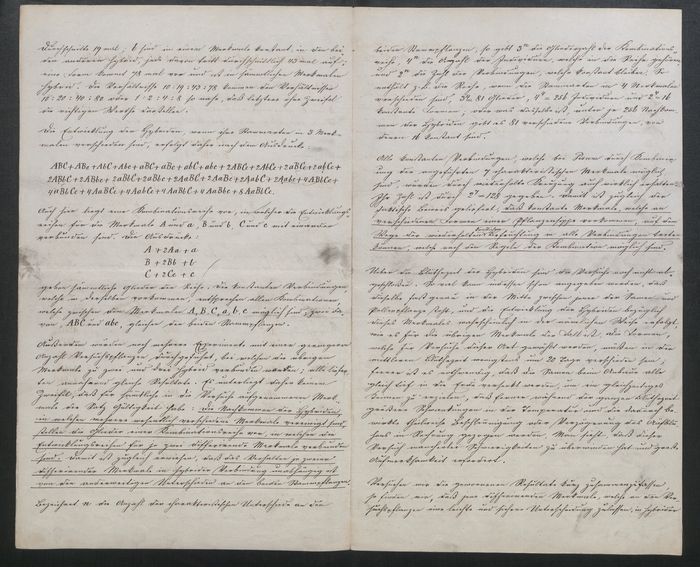 Durchschnitte 19 mal, 6 sind in einem Merkmale constant, in den bei-
den anderen hybrid, jede davon tritt durchschnittlich 43 mal auf;
eine Form kommt 78 mal vor und ist in sämmtlichen Merkmalen
hybrid. Die Verhältnisse 10:19:43:78 kommen den Verhältnissen
10:20:40:80 oder 1:2:4:8 so nahe, daß letztere ohne Zweifel
die richtigen Werthe darstellen.
Die Entwicklung der Hybriden, wenn ihre Stammarten in 3 Merk-
malen verschieden sind, erfolgt daher nach dem Ausdrucke:
ABC + ABc + AbC + Abc + aBC + aBc + abC + abc + 2ABCc + 2AbCc + 2aBCc + 2abCc +
2ABbC + 2ABbc + 2aBbC + 2aBbc + 2AaBC + 2AaBc + 2AabC + 2Aabc + 4ABbCc +
4aBbCc + 4AaBCc + 4AabCc + 4AaBbC + 4AaBbc + 8AaBbCc.
Auch hier liegt eine Kombinationsreihe vor, in welcher die Entwicklungs-
reihen für die Merkmale A und a, B und b, C und c mit einander
verbunden sind. Die Ausdrücke:
A + 2Aa + a
B + 2Bb + b
C + 2Cc + c
geben sämmtliche Glieder der Reihe. Die constanten Verbindungen,
welche in derselben vorkommen, entsprechen allen Kombinationen,
welche zwischen den Merkmalen A, B, C, a, b, c möglich sind; zwei da-
von, ABC und abc, gleichen den beiden Stammpflanzen.
Außerdem wurden noch mehrere Experimente mit einer geringeren
Anzahl Versuchspflanzen durchgeführt, bei welchen die übrigen
Merkmale zu zwei und drei hybrid verbunden waren; alle liefer-
ten annähernd gleiche Resultate. Es unterliegt daher keinem
Zweifel, daß für sämmtliche in die Versuche aufgenommenen Merk-
male der Satz Gültigkeit habe: die Nachkommen der Hybriden,
in welchen mehrere wesentlich verschiedene Merkmale vereinigt sind,
stellen die Glieder einer Kombinationsreihe vor, in welchen die
Entwicklungsreihen für je zwei differirende Merkmale verbunden
sind. Damit ist zugleich erwiesen, daß das Verhalten je zweier
differirender Merkmale in hybrider Verbindung unabhängig ist
von den anderweitigen Unterschieden an den beiden Stammpflanzen.
Bezeichnet n die Anzahl der charakteristischen Unterschiede an den
beiden Stammpflanzen, so gibt 3ⁿ die Gliederzahl der Kombinations-
reihe, 4ⁿ die Anzahl der Individuen, welche in die Reihe gehören,
und 2ⁿ die Zahl der Verbindungen, welche constant bleiben. So
enthält z. B. die Reihe, wenn die Stammarten in 4 Merkmalen
verschieden sind, 3⁴ = 81 Glieder, 4⁴ = 256 Individuen und 2⁴ = 16
constante Formen; oder was dasselbe ist, unter je 256 Nachkom-
men der Hybriden gibt es 81 verschiedene Verbindungen, von
denen 16 constant sind.
Alle constanten Verbindungen, welche bei Pisum durch Kombinir-
ung der angeführten 7 charakteristischen Merkmale möglich
sind, wurden durch wiederholte Kreuzung auch wirklich erhalten.
Ihre Zahl ist durch 2⁷ = 128 gegeben. Damit ist zugleich der
faktische Beweis geliefert: daß constante Merkmale, welche an
verschiedenen Formen einer Pflanzensippe vorkommen, auf dem
Wege der wiederholten künstlichen Befruchtung in alle Verbindungen treten
können, welche nach den Regeln der Kombination möglich sind.
Ueber die Blüthezeit der Hybriden sind die Versuche noch nicht ab-
geschlossen. So viel kann indessen schon angegeben werden, daß
dieselbe fast genau in der Mitte zwischen jener der Samen- und
Pollenpflanze steht, und die Entwicklung der Hybriden bezüglich
dieses Merkmales wahrscheinlich in der nämlichen Weise erfolgt,
wie es für die übrigen Merkmale der Fall ist. Die Formen,
welche für Versuche dieser Art gewählt werden, müssen in der
mittleren Blüthezeit wenigstens um 20 Tage verschieden sein;
ferner ist es nothwendig, daß die Samen beim Anbaue alle
gleich tief in die Erde versenkt werden, um ein gleichzeitiges
Keimen zu erzielen, daß ferner während der ganzen Blüthezeit
größere Schwankungen in der Temperatur und die dadurch be-
wirkte theilweise Beschleunigung oder Verzögerung des Aufblü-
hens in Rechnung gezogen werden. Man sieht, daß dieser
Versuch mancherlei Schwierigkeiten zu überwinden hat und große
Aufmerksamkeit erfordert.
Versuchen wir die gewonnenen Resultate kurz zusammenzufassen,
so finden wir, daß jene differirenden Merkmale, welche an den Ver-
suchspflanzen eine leichte und sichere Unterscheidung zulassen, in hybrider